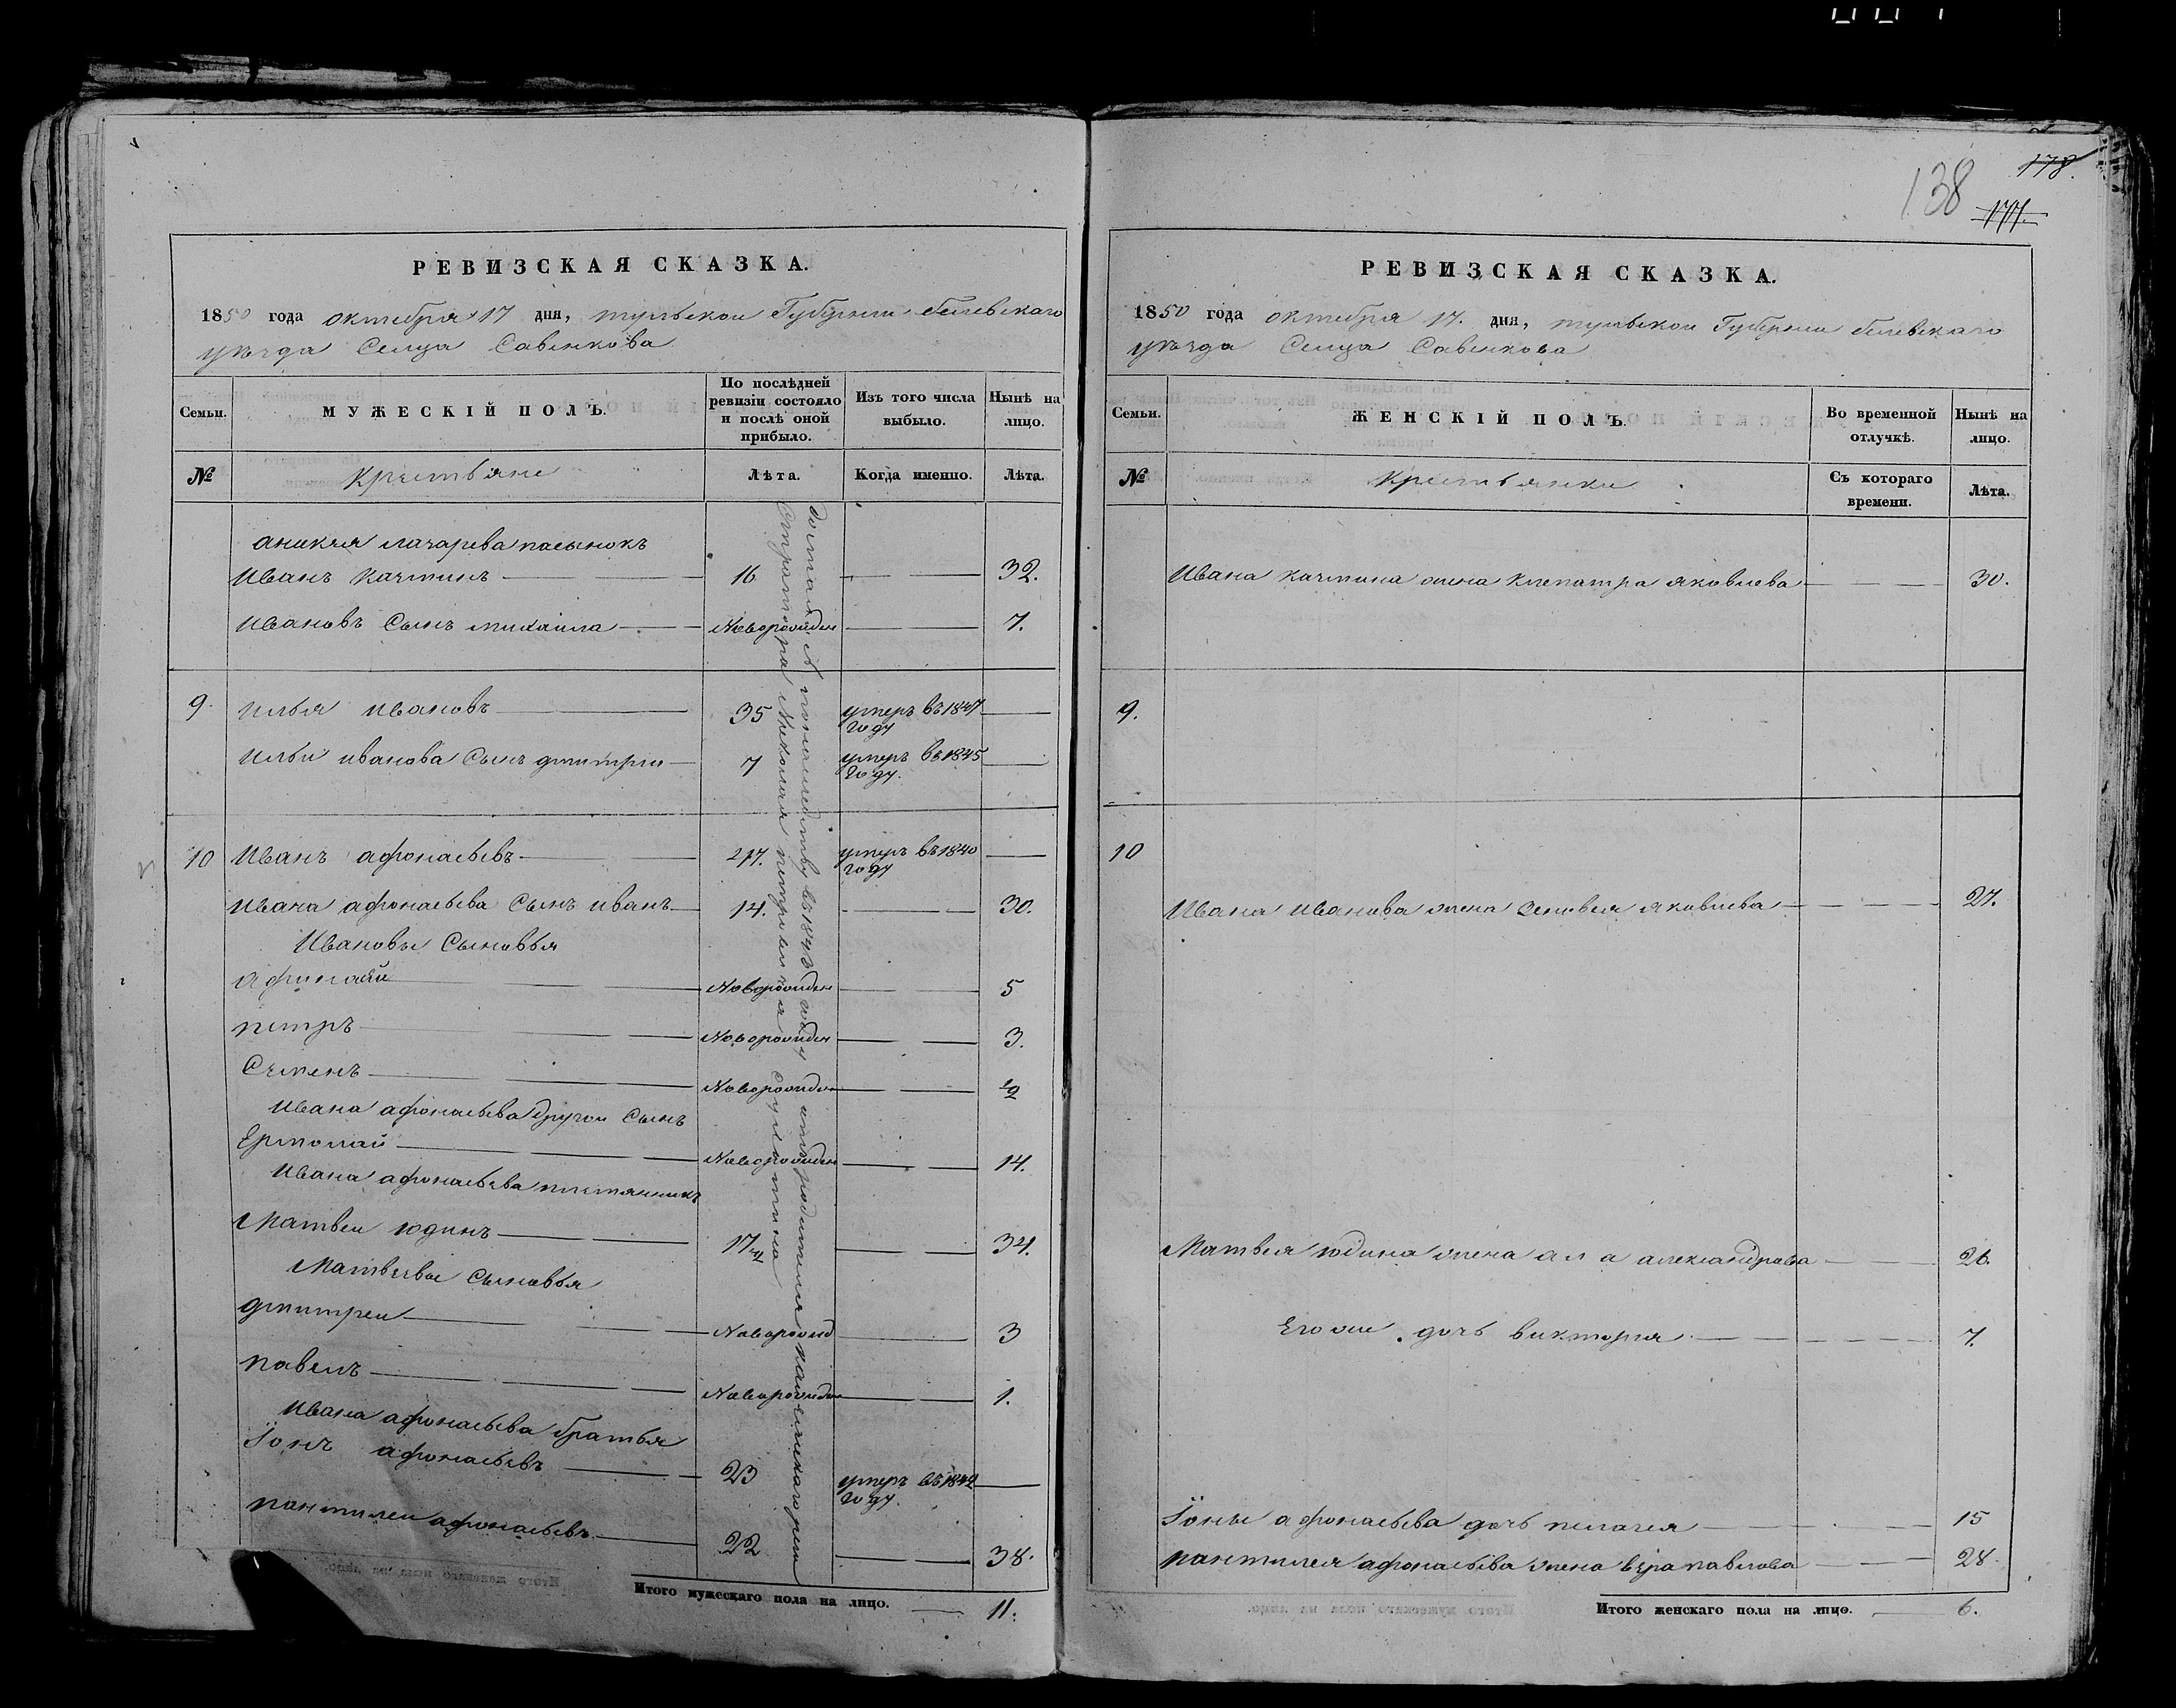 138
178.
177.
РЕВИЗСКАЯ СКАЗКА.
1850 года октебря 17 дня, тульскои Губернии белевскаго
уѣзда Селца Савенкова
Семьи.
МУЖЕСКІЙ ПОЛЪ.
По послѣдней ревизіи состояло и послѣ оной прибыло.
Изъ того числа выбыло.
Нынѣ на лицо.
№
Крестьяне
Лѣта.
Когда именно.
Лѣта.
пасынокъ
Иванъ 16 32.
Ивановъ Сынъ михаила Новорожден 7.
9. илья ивановъ 35 умеръ въ 1847 году
Ильи иванова Сынъ дмитрии 7 умеръ въ 1845 году.
10 Иванъ афонасьевъ 47. умеръ въ 1840 году
Ивана афонасьева Сынъ иванъ 14. 30.
Ивановы Сыновья
афонасй Новорожден 5
петръ Новорожден 3.
Степенъ Новорожден 1/2
Ивана афонасьева другои Сынъ
Ермолаи Новорожден 14.
Ивана афонасьева племянникъ
Матвеи юдинъ 17 34.
Матвѣевы Сыновья
дмитреи Новорожд 3
павелъ Новорожден 1.
Ивана афонасьева братья
Їонъ афонасьевъ 23 умеръ въ 1842 году.
пантилеи афонасьевъ 22 38.
Итого мужескаго пола на лицо. 11.
въ 1843 году
Николая
РЕВИЗСКАЯ СКАЗКА.
1850 года октебря 17. дня, тульскои Губернии белевскаго
уѣзда Селца Савенкова
Семьи.
ЖЕНСКІЙ ПОЛЪ.
Во временной отлучкѣ.
Нынѣ на лицо.
№
Крестьянки
Съ котораго времени.
Лѣта.
Ивана жена клепатра яковлева 30.
9.
10
Ивана Иванова жена зеновея яковлева 27.
Матвея юдина жена александрова 26.
Его же дочь виктория 7.
Їоны афонасьева дочь пелагея 15
пантилея афонасьева жена вера павлова 28.
Итого женскаго пола на лицо. 6.